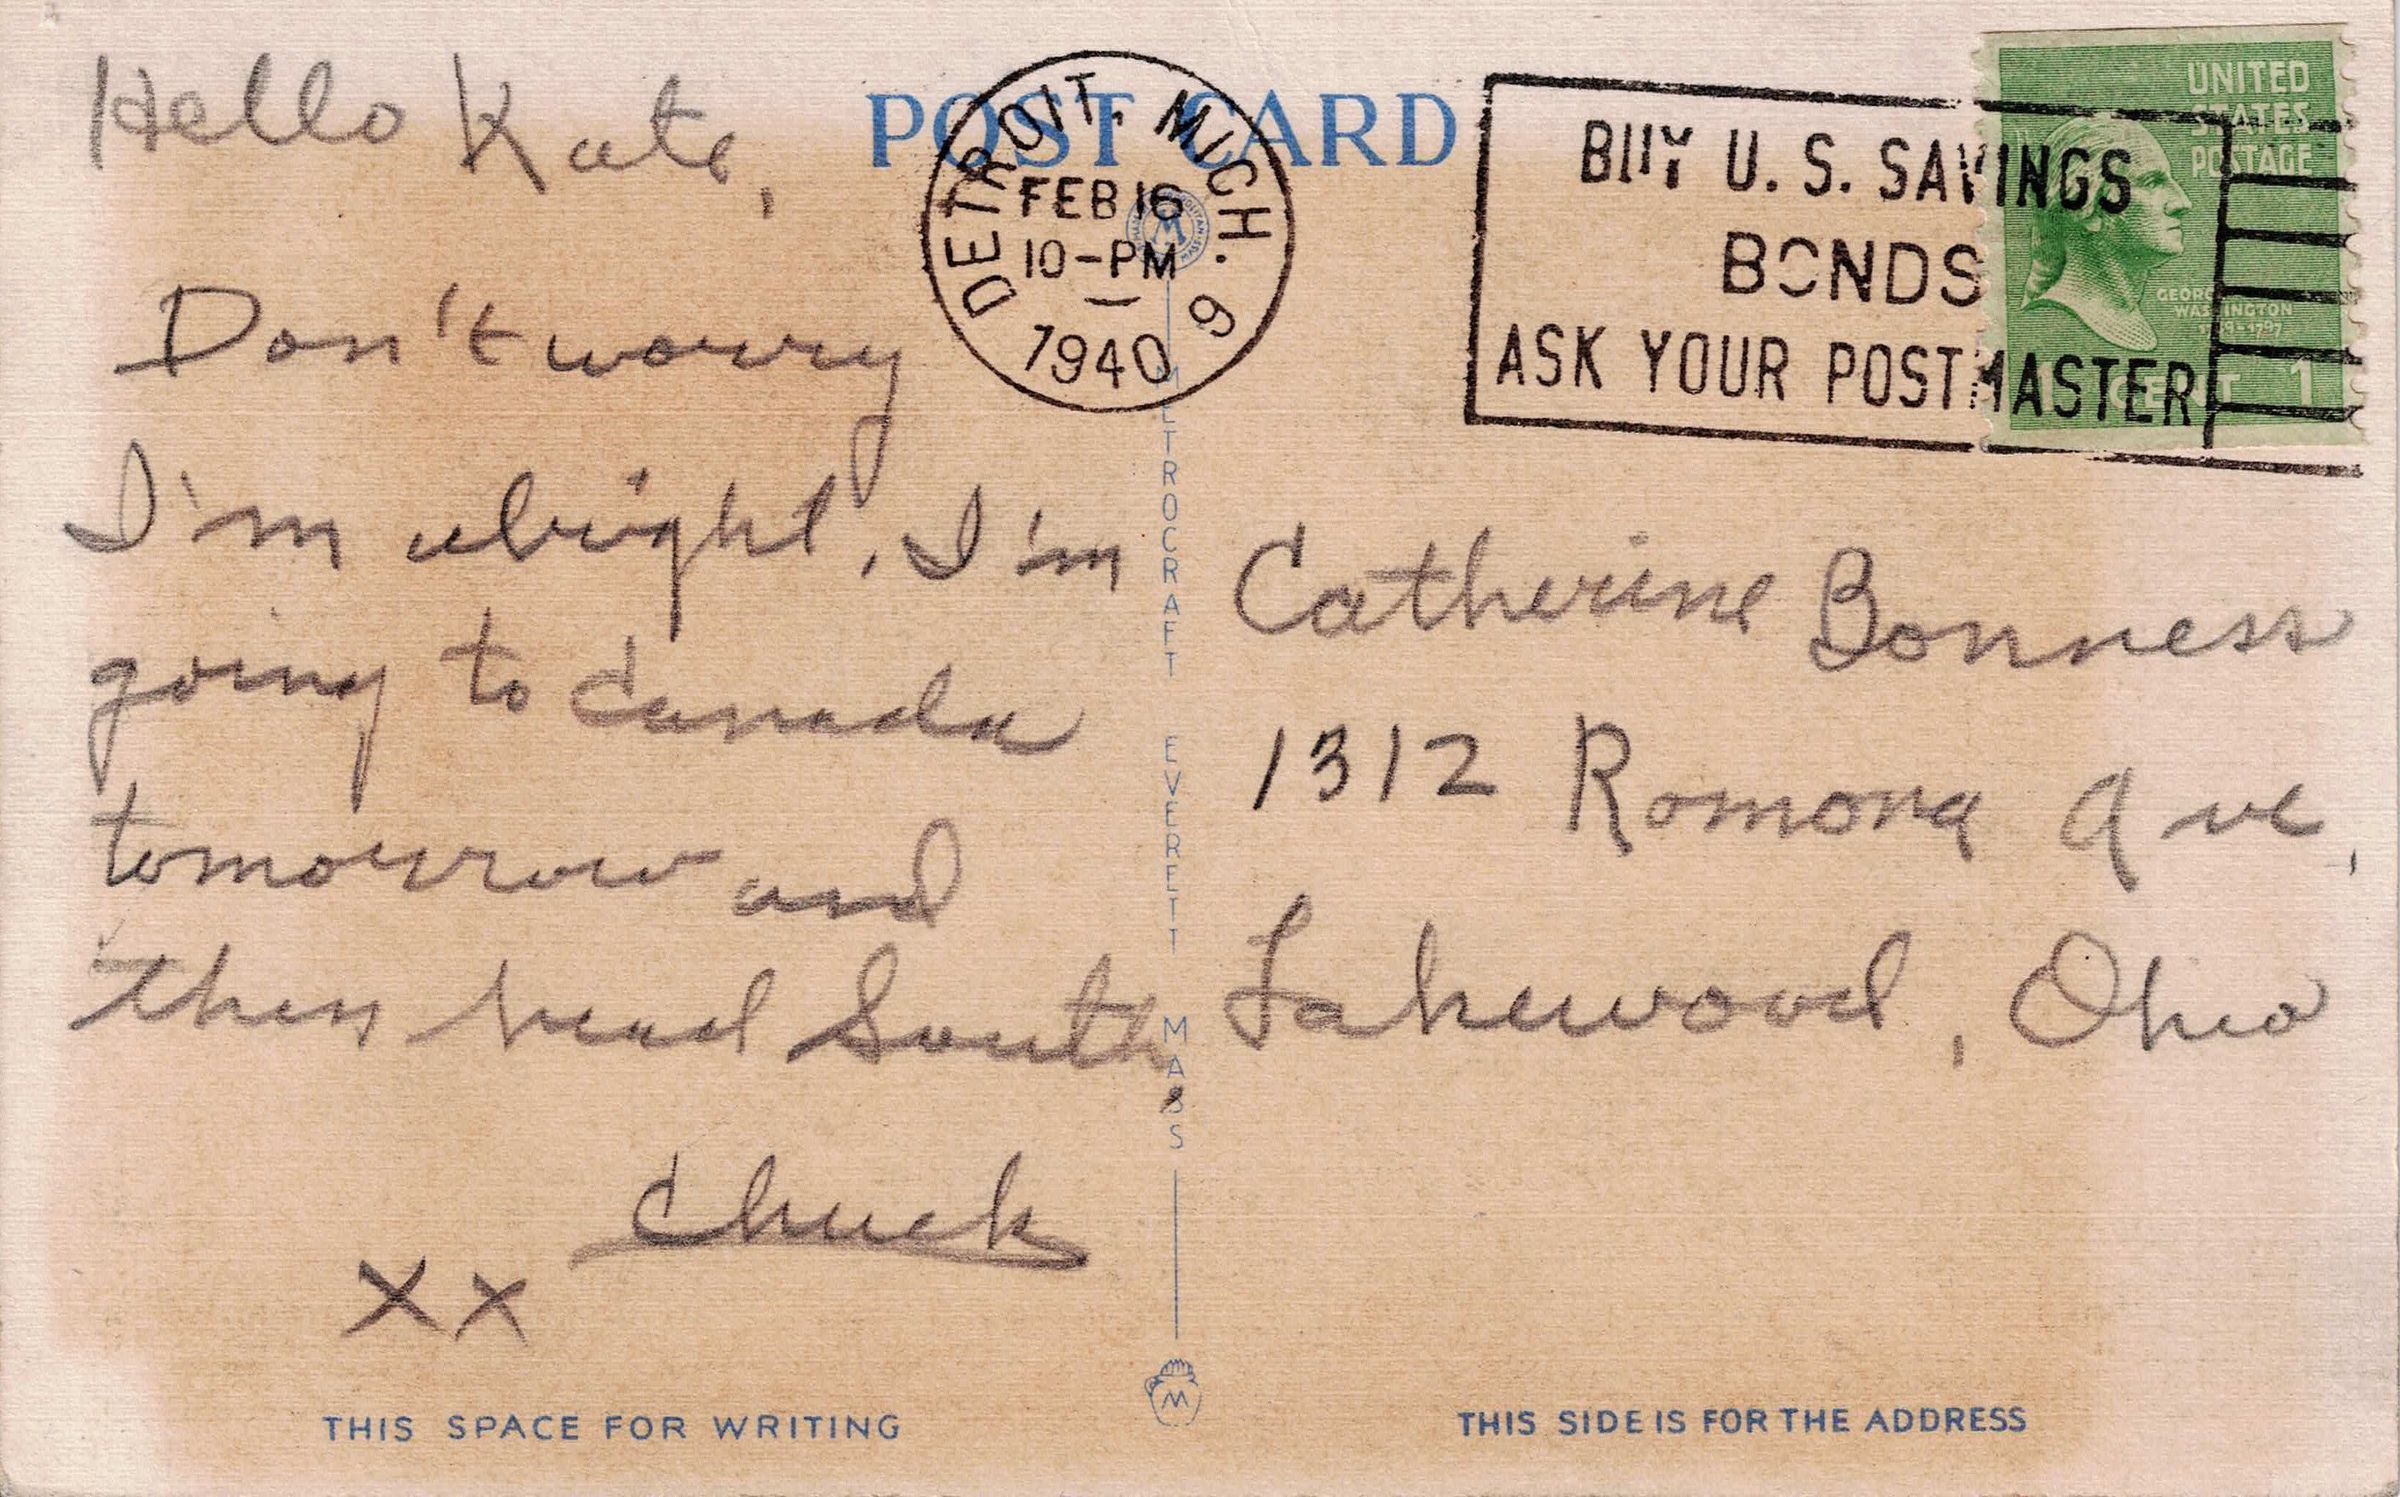 POST CARD
DETROIT, MICH. 9
FEB 16
10-PM
1940
BUY U. S. SAVINGS
BONDS
ASK YOUR POSTMASTER
UNITED
STATES
POSTAGE
GEORGE
WASHINGTON
1789-1797
1 CENT 1
Hello Kate,
Don't worry
I'm alright, I'm
going to Canada
tomorrow and
then head South,
Chuck
XX
METROCRAFT EVERETT MASS
M
Catherine Bonness
1312 Romona Ave,
Lakewood, Ohio
THIS SPACE FOR WRITING
THIS SIDE IS FOR THE ADDRESS